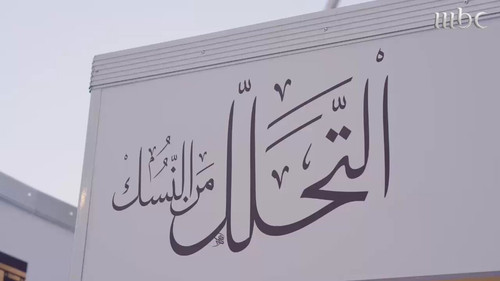 mbc
التحلّل من النُّسُك